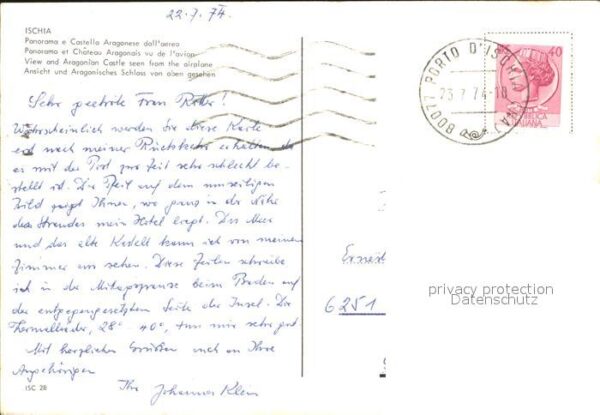 22.7.74
ISCHIA
Panorama e Castello Aragonese dall'aereo
Panorama et Château Aragonais vu de l'avion
View and Aragonian Castle seen from the airplane
Ansicht und Aragonisches Schloss von oben gesehen
80077 PORTO D'ISCHIA (NA)
23.7.74-18
40
Sehr geehrte Frau
Wahrscheinlich werden Sie diese Karte
erst nach meiner Rückkehr erhalten, da
es mit der Post zur Zeit sehr schlecht be-
stellt ist. Der Pfeil auf dem umseitigen
Bild zeigt Ihnen, wo ganz in der Nähe
des Strandes mein Hotel liegt. Das Meer
und das alte Kastell kann ich von meinem
Zimmer aus sehen. Diese Zeilen schreibe
ich in der Mittagspause beim Baden auf
der entgegengesetzten Seite der Insel. Die
Thermalbäder, 28° - 40°, tun mir sehr gut.
Mit herzlichen Grüßen auch an Ihre
Angehörigen
Ihr Johannes Klein
6251
privacy protection
Datenschutz
ISC 28